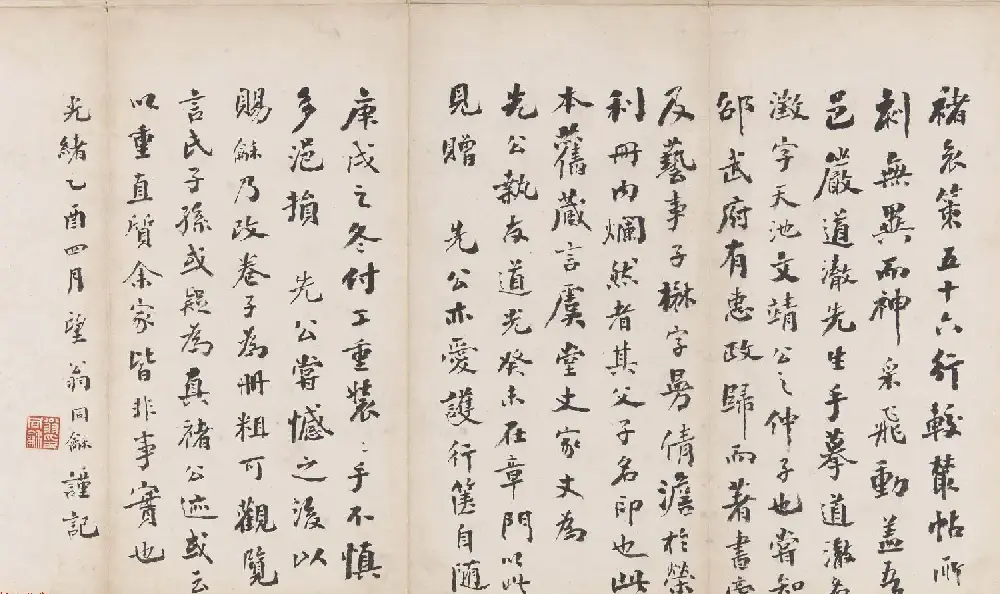 褚哀策五十六行較叢帖所
刻無異而神采飛動蓋吾
邑嚴道澈先生手摹道澈名
澂字天池文靖公之仲子也嘗知
邵武府有惠政歸而著書
及藝事子櫞字曼倩澹於榮
利冊內爛然者其父子名印也此
本舊藏言虞堂丈家丈為
先公執友道光癸未在章門以此
見贈 先公亦愛護行篋自隨
庚戌之冬付工重裝〻手不慎
多浥損 先公嘗憾之後以
賜龢乃改卷子為冊粗可觀覽
言氏子孫或疑為真褚公迹或云
以重直質余家皆非事實也
光緒乙酉四月望翁同龢謹記